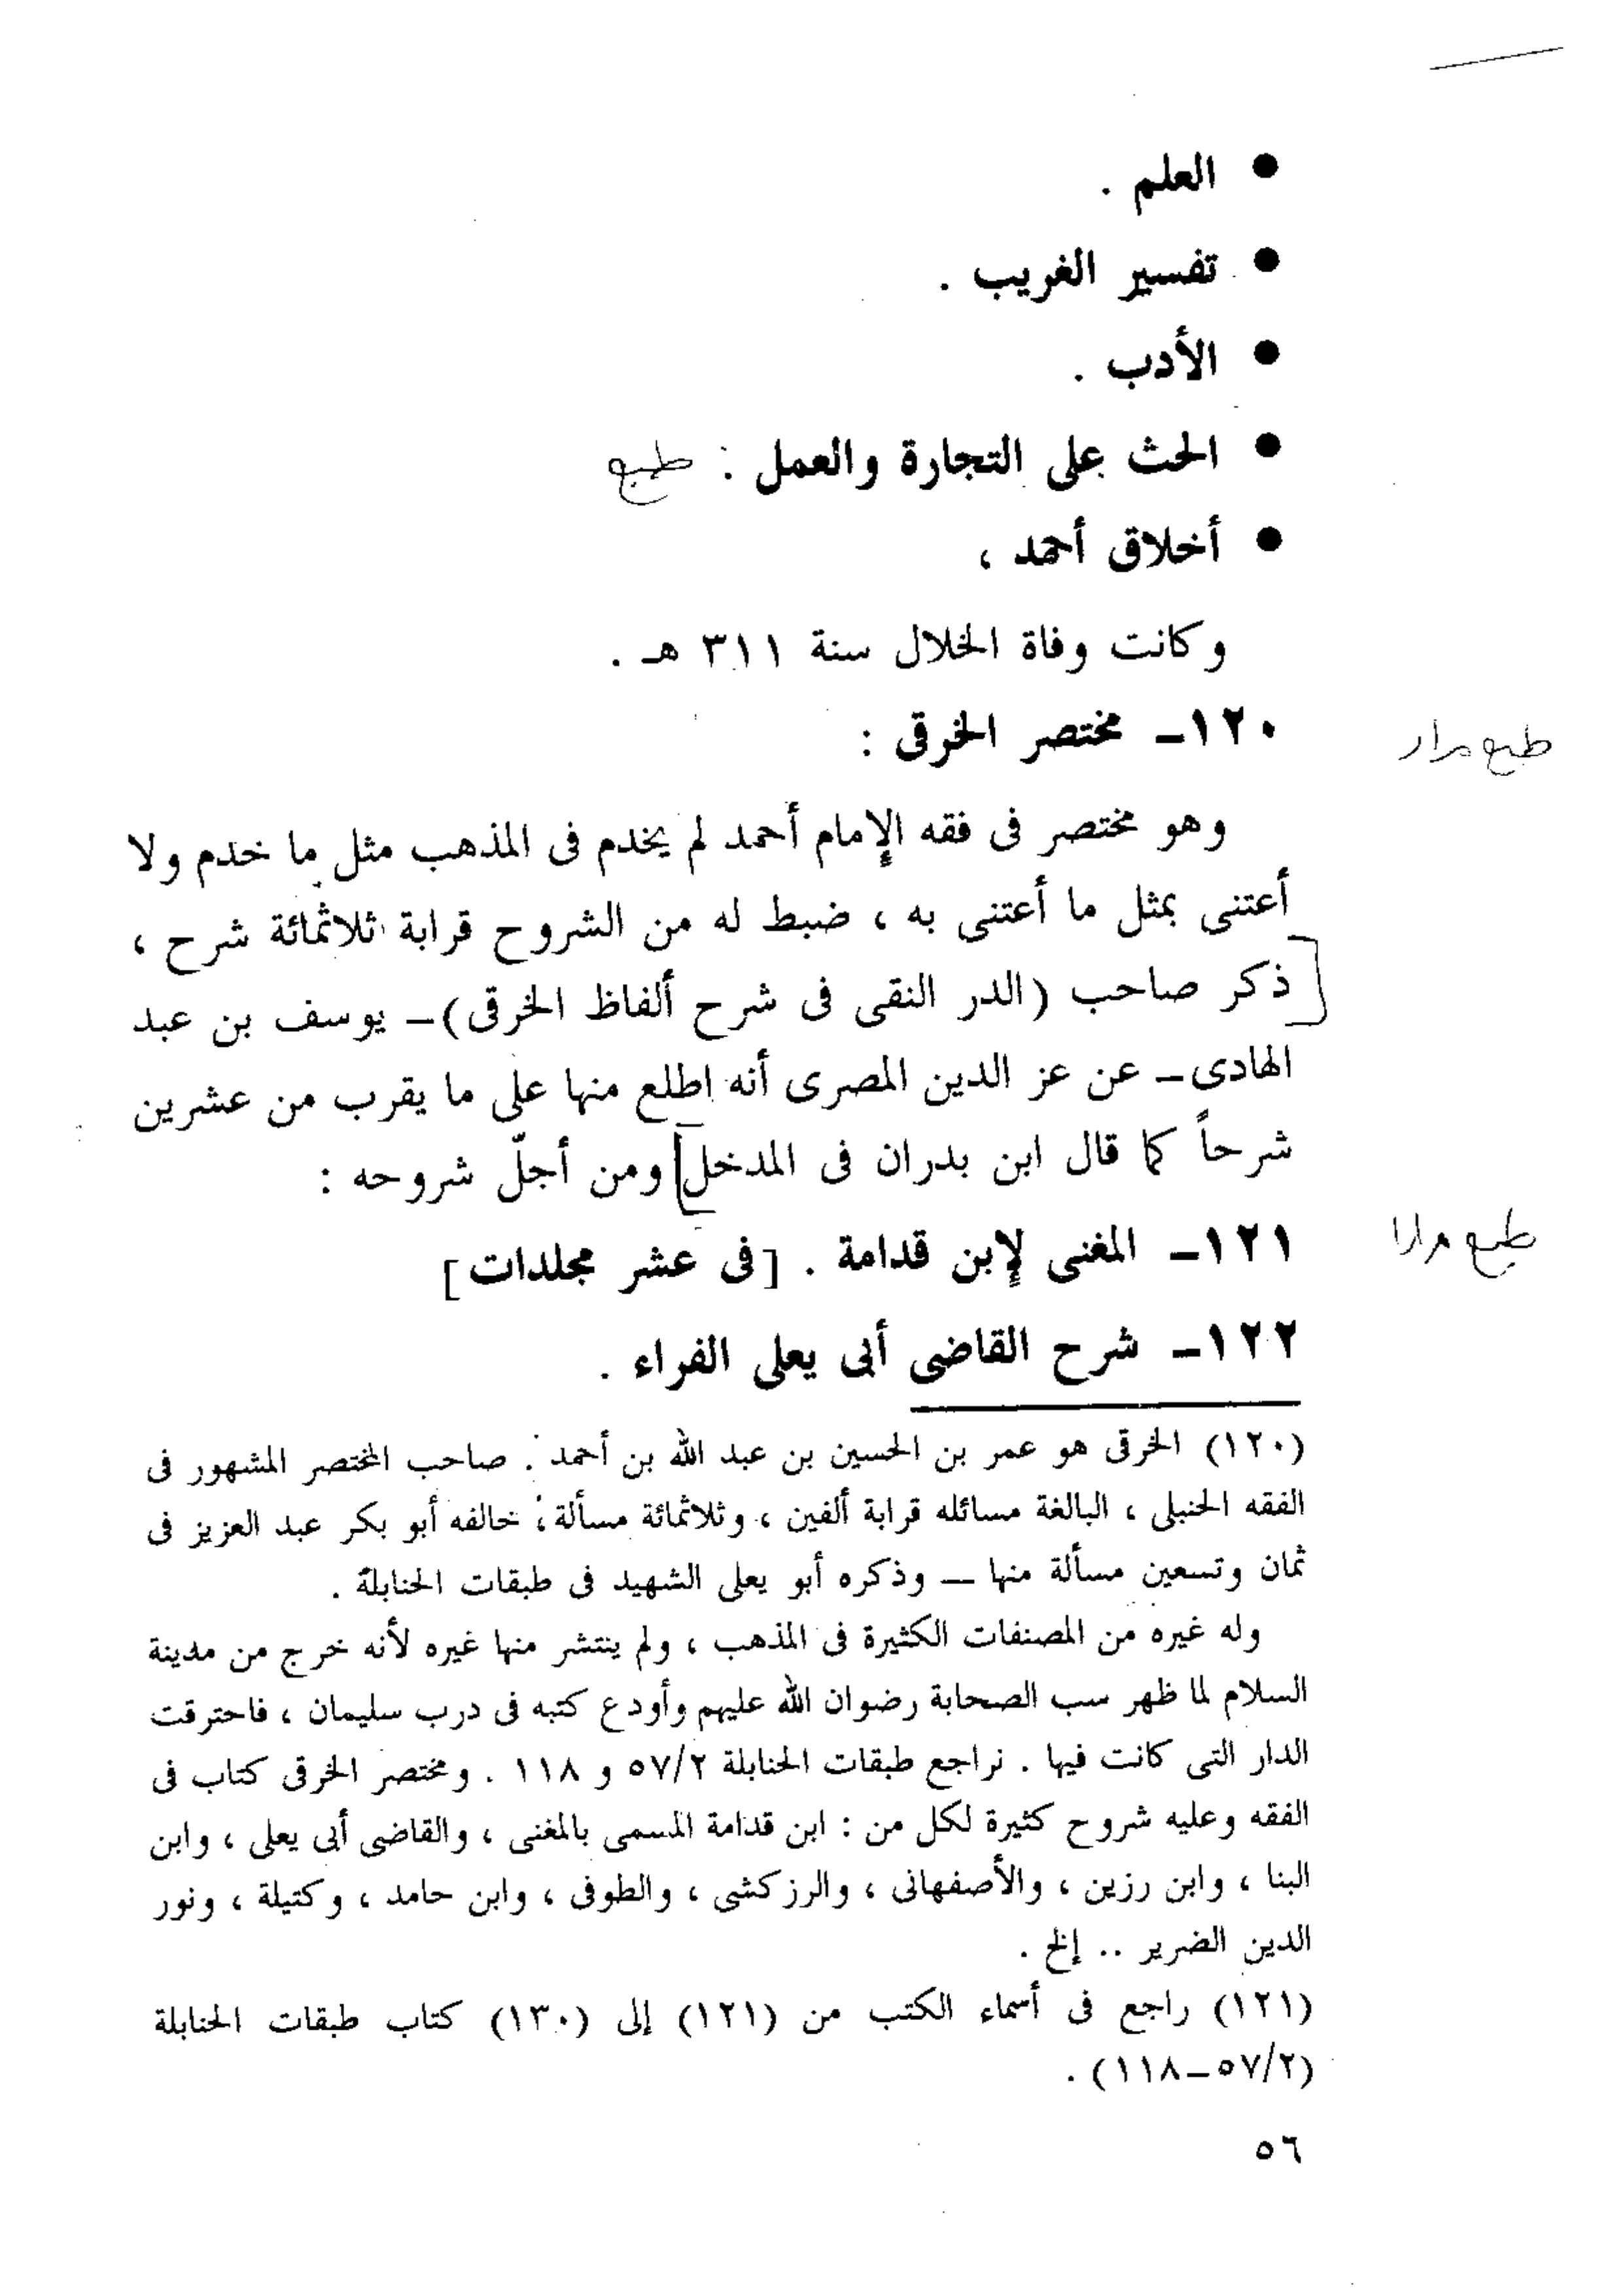 ● العلم .
● تفسير الغريب .
● الأدب .
● الحث على التجارة والعمل : طبع
● أخلاق أحمد ،
وكانت وفاة الخلال سنة ٣١١ هـ .
١٢٠ـ مختصر الخرقى :
طبع مرار
وهو مختصر فى فقه الإمام أحمد لم يخدم فى المذهب مثل ما خدم ولا
أعتنى بمثل ما أعتنى به ، ضبط له من الشروح قرابة ثلاثمائة شرح ،
[ذكر صاحب (الدر النقى فى شرح ألفاظ الخرقى)ـ يوسف بن عبد
الهادى ـ عن عز الدين المصرى أنه اطلع منها على ما يقرب من عشرين
شرحاً كما قال ابن بدران فى المدخل] ومن أجلّ شروحه :
١٢١ـ المغنى لإبن قدامة . [فى عشر مجلدات]
طبع مرارا
١٢٢ـ شرح القاضى أبى يعلى الفراء .
(١٢٠) الخرقى هو عمر بن الحسين بن عبد الله بن أحمد . صاحب المختصر المشهور فى
الفقه الحنبلى ، البالغة مسائله قرابة ألفين ، وثلاثمائة مسألة ، خالفه أبو بكر عبد العزيز فى
ثمان وتسعين مسألة منها ــ وذكره أبو يعلى الشهيد فى طبقات الحنابلة .
وله غيره من المصنفات الكثيرة فى المذهب ، ولم ينتشر منها غيره لأنه خرج من مدينة
السلام لما ظهر سب الصحابة رضوان الله عليهم وأودع كتبه فى درب سليمان ، فاحترقت
الدار التى كانت فيها . نراجع طبقات الحنابلة ٥٧/٢ و ١١٨ . ومختصر الخرقى كتاب فى
الفقه وعليه شروح كثيرة لكل من : ابن قدامة المسمى بالمغنى ، والقاضى أبى يعلى ، وابن
البنا ، وابن رزين ، والأصفهانى ، والرزكشى ، والطوفى ، وابن حامد ، وكتيلة ، ونور
الدين الضرير .. إلخ .
(١٢١) راجع فى أسماء الكتب من (١٢١) إلى (١٣٠) كتاب طبقات الحنابلة
(٥٧/٢ـ١١٨) .
٥٦